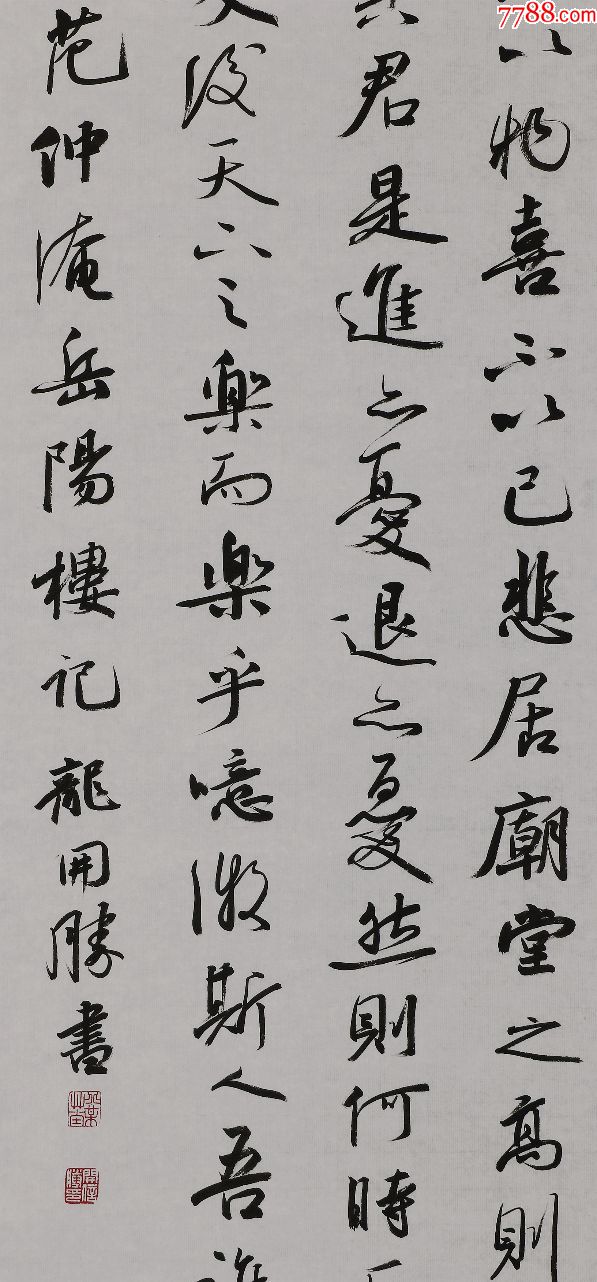 7788.com
以物喜不以己悲居廟堂之高則
君是進亦憂退亦憂然則何時
後天下之樂而樂乎噫微斯人吾
范仲淹岳陽樓記龍開勝書